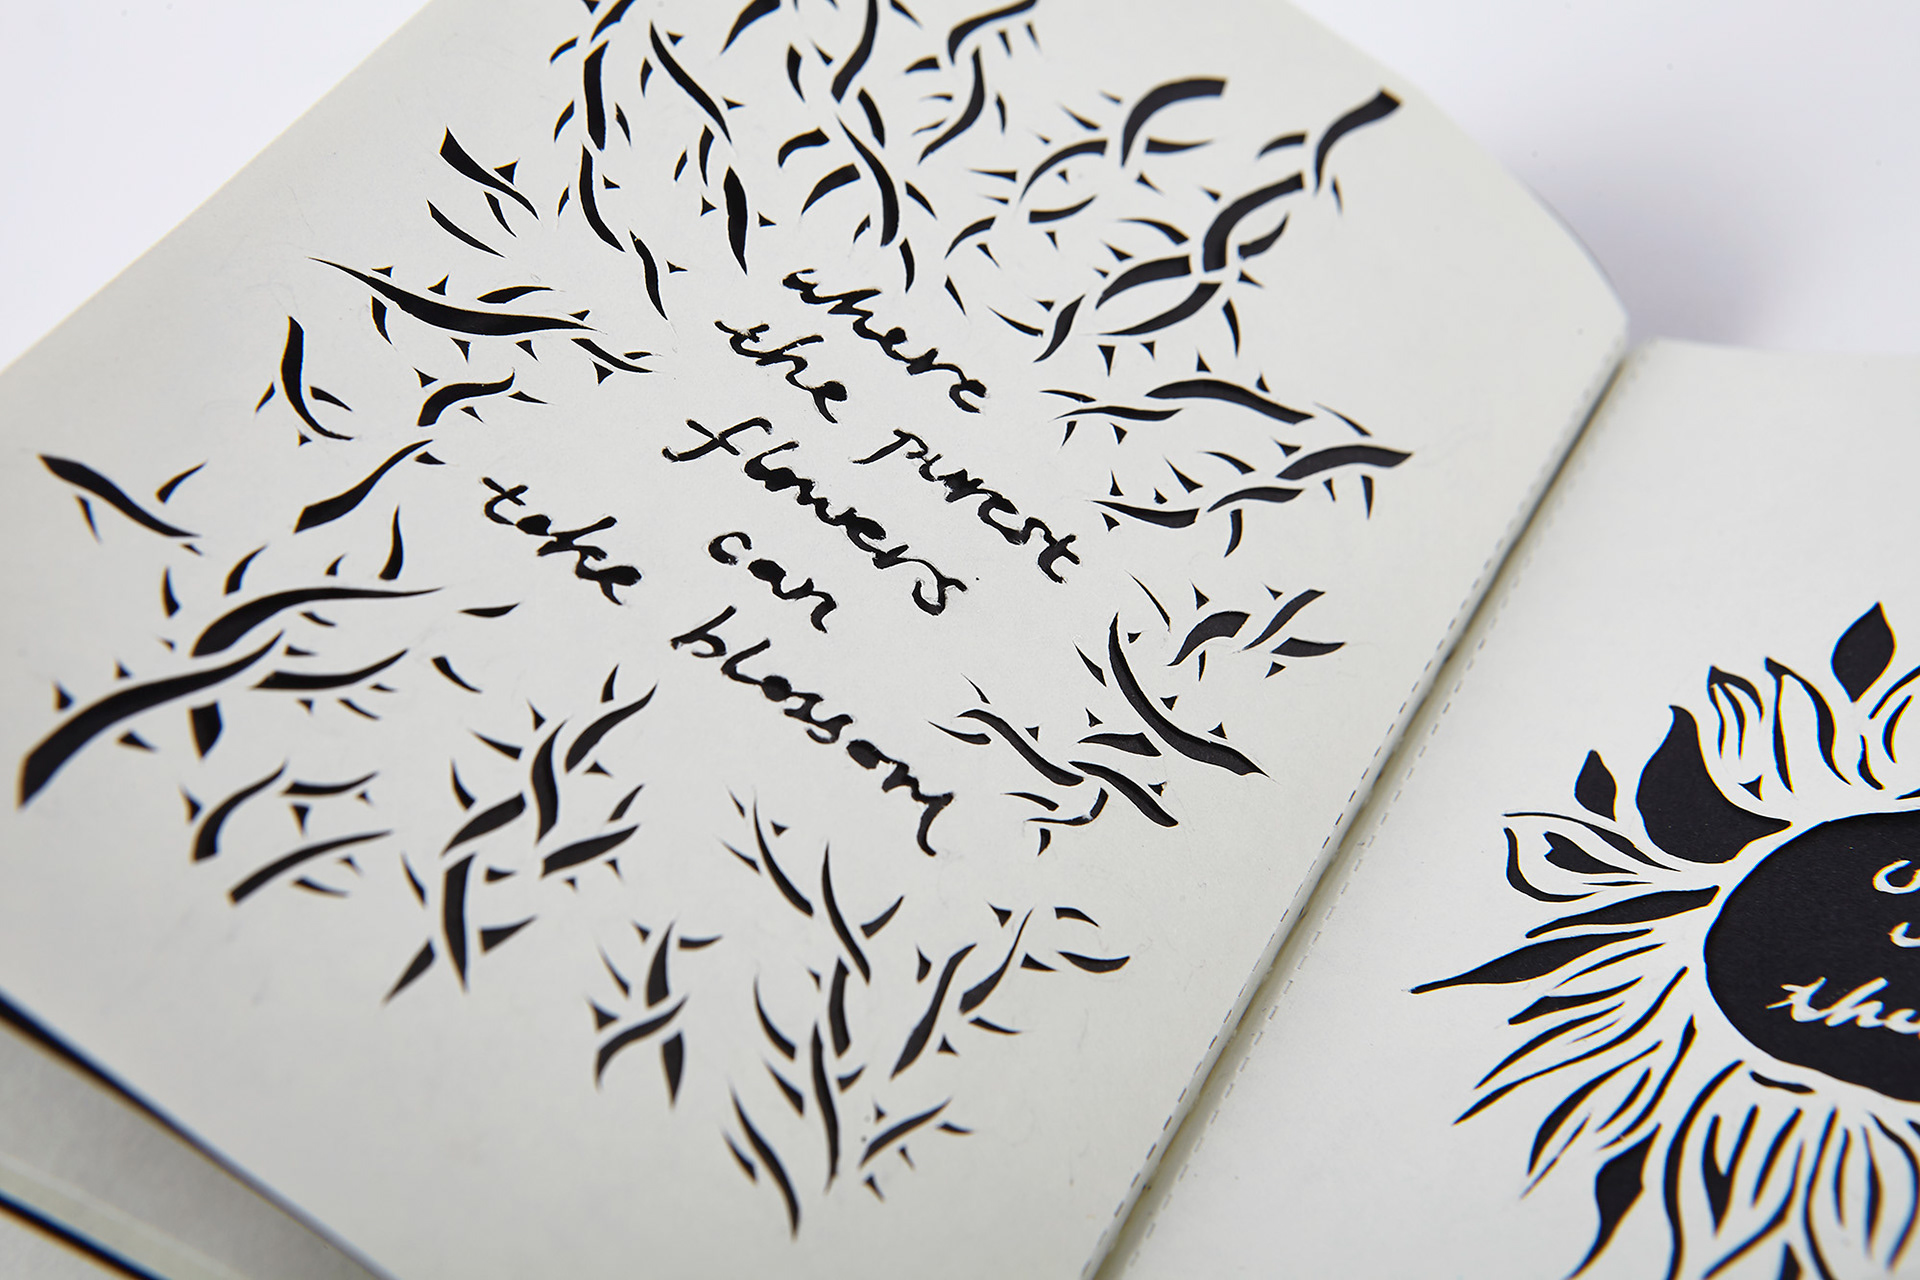 where
the purest
flowers
can
take blossom